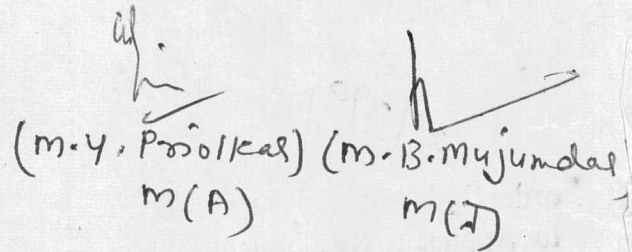 (M.Y. Priolkar) (M.B. Mujumdar
M(A) M(J)